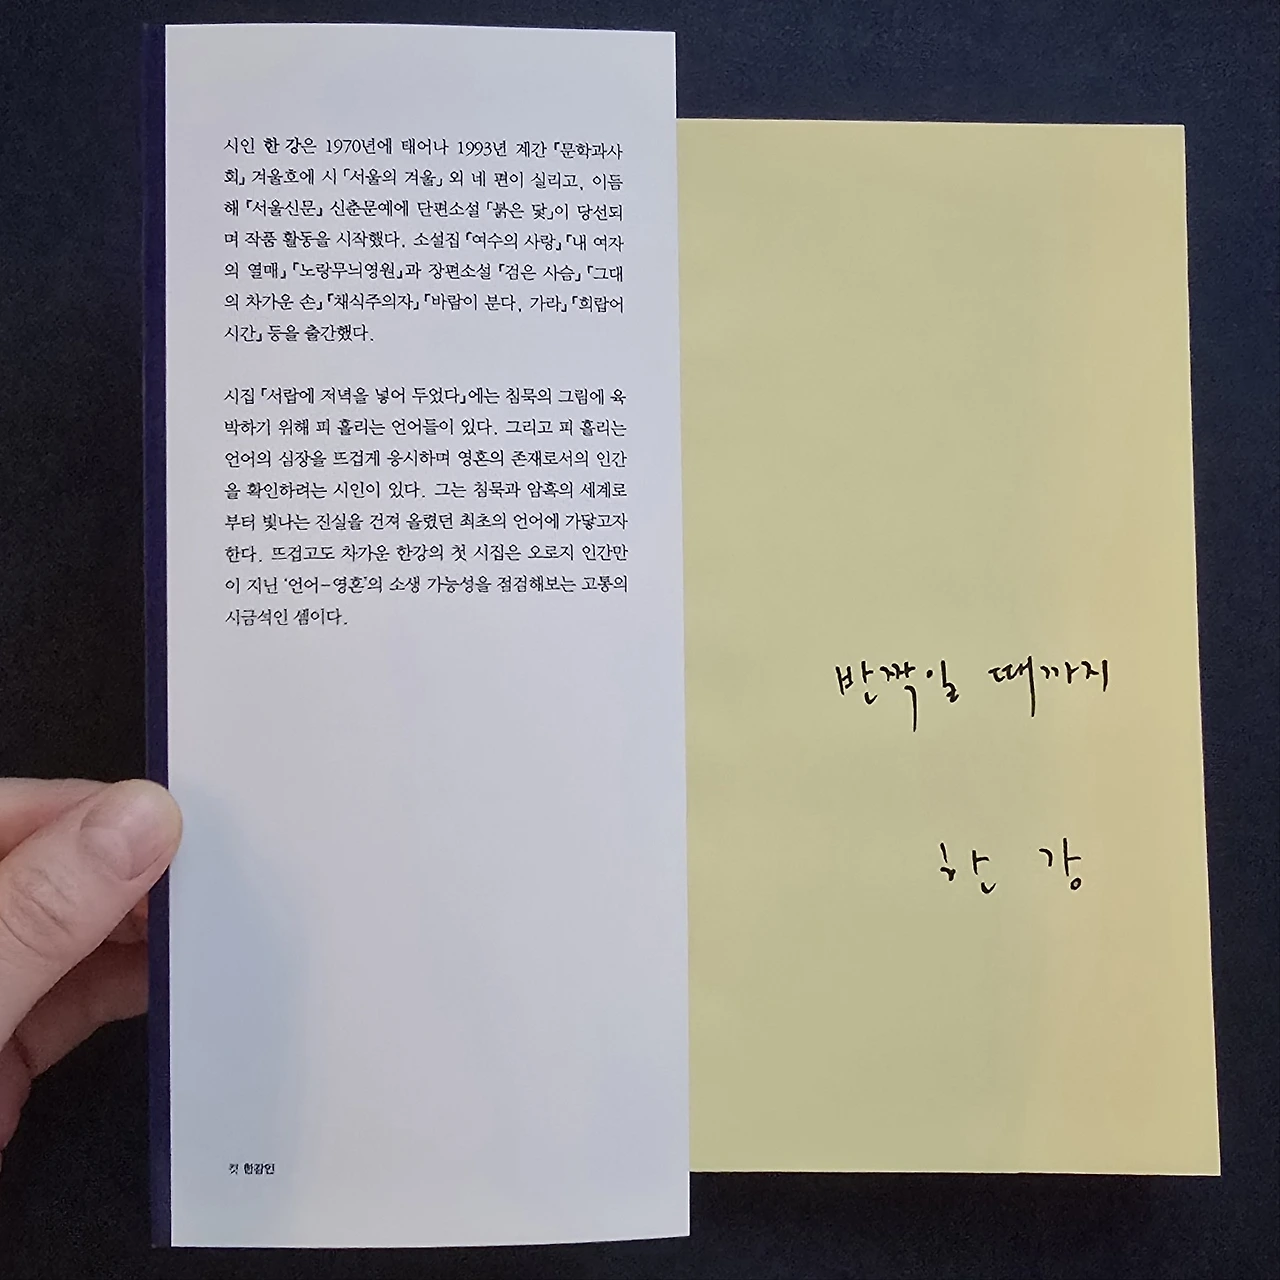 시인 한 강은 1970년에 태어나 1993년 계간 『문학과사
회』 겨울호에 시 「서울의 겨울」 외 네 편이 실리고, 이듬
해 『서울신문』 신춘문예에 단편소설 「붉은 닻」이 당선되
며 작품 활동을 시작했다. 소설집 『여수의 사랑』 『내 여자
의 열매』 『노랑무늬영원』과 장편소설 『검은 사슴』 『그대
의 차가운 손』 『채식주의자』 『바람이 분다, 가라』 『희랍어
시간』 등을 출간했다.
시집 『서랍에 저녁을 넣어 두었다』에는 침묵의 그림에 육
박하기 위해 피 흘리는 언어들이 있다. 그리고 피 흘리는
언어의 심장을 뜨겁게 응시하며 영혼의 존재로서의 인간
을 확인하려는 시인이 있다. 그는 침묵과 암흑의 세계로
부터 빛나는 진실을 건져 올렸던 최초의 언어에 가닿고자
한다. 뜨겁고도 차가운 한강의 첫 시집은 오로지 인간만
이 지닌 '언어-영혼'의 소생 가능성을 점검해보는 고통의
시금석인 셈이다.
컷 한강인
반짝일 때까지
한 강